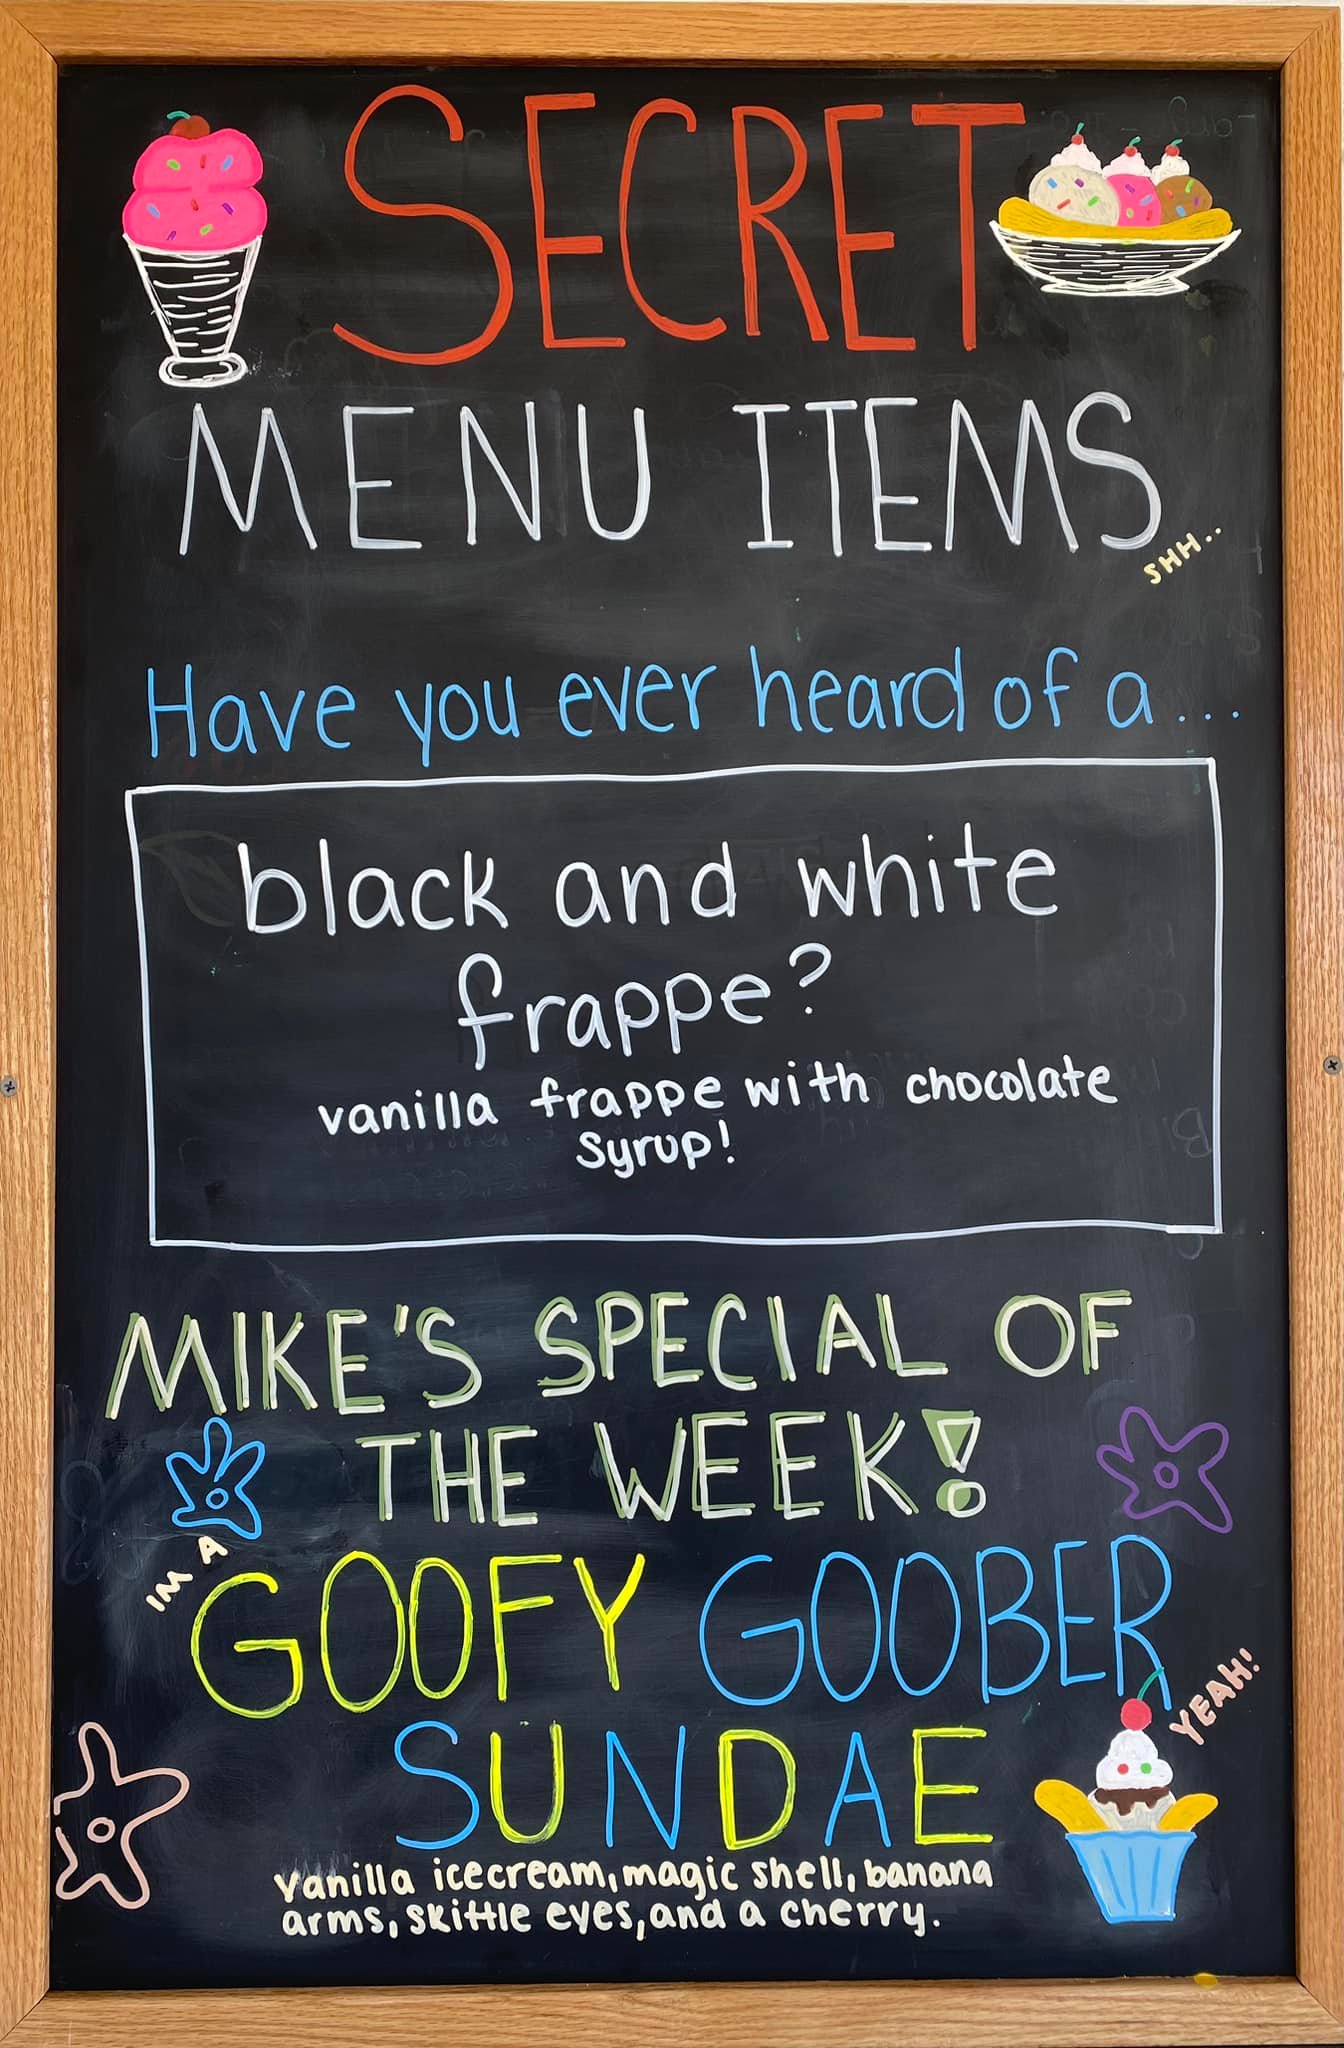 SECRET
MENU ITEMS
SHH..
Have you ever heard of a...
black and white
frappe?
vanilla frappe with chocolate
syrup!
MIKE'S SPECIAL OF
THE WEEK!
IM A
GOOFY GOOBER
YEAH!
SUNDAE
vanilla icecream, magic shell, banana
arms, skittle eyes, and a cherry.